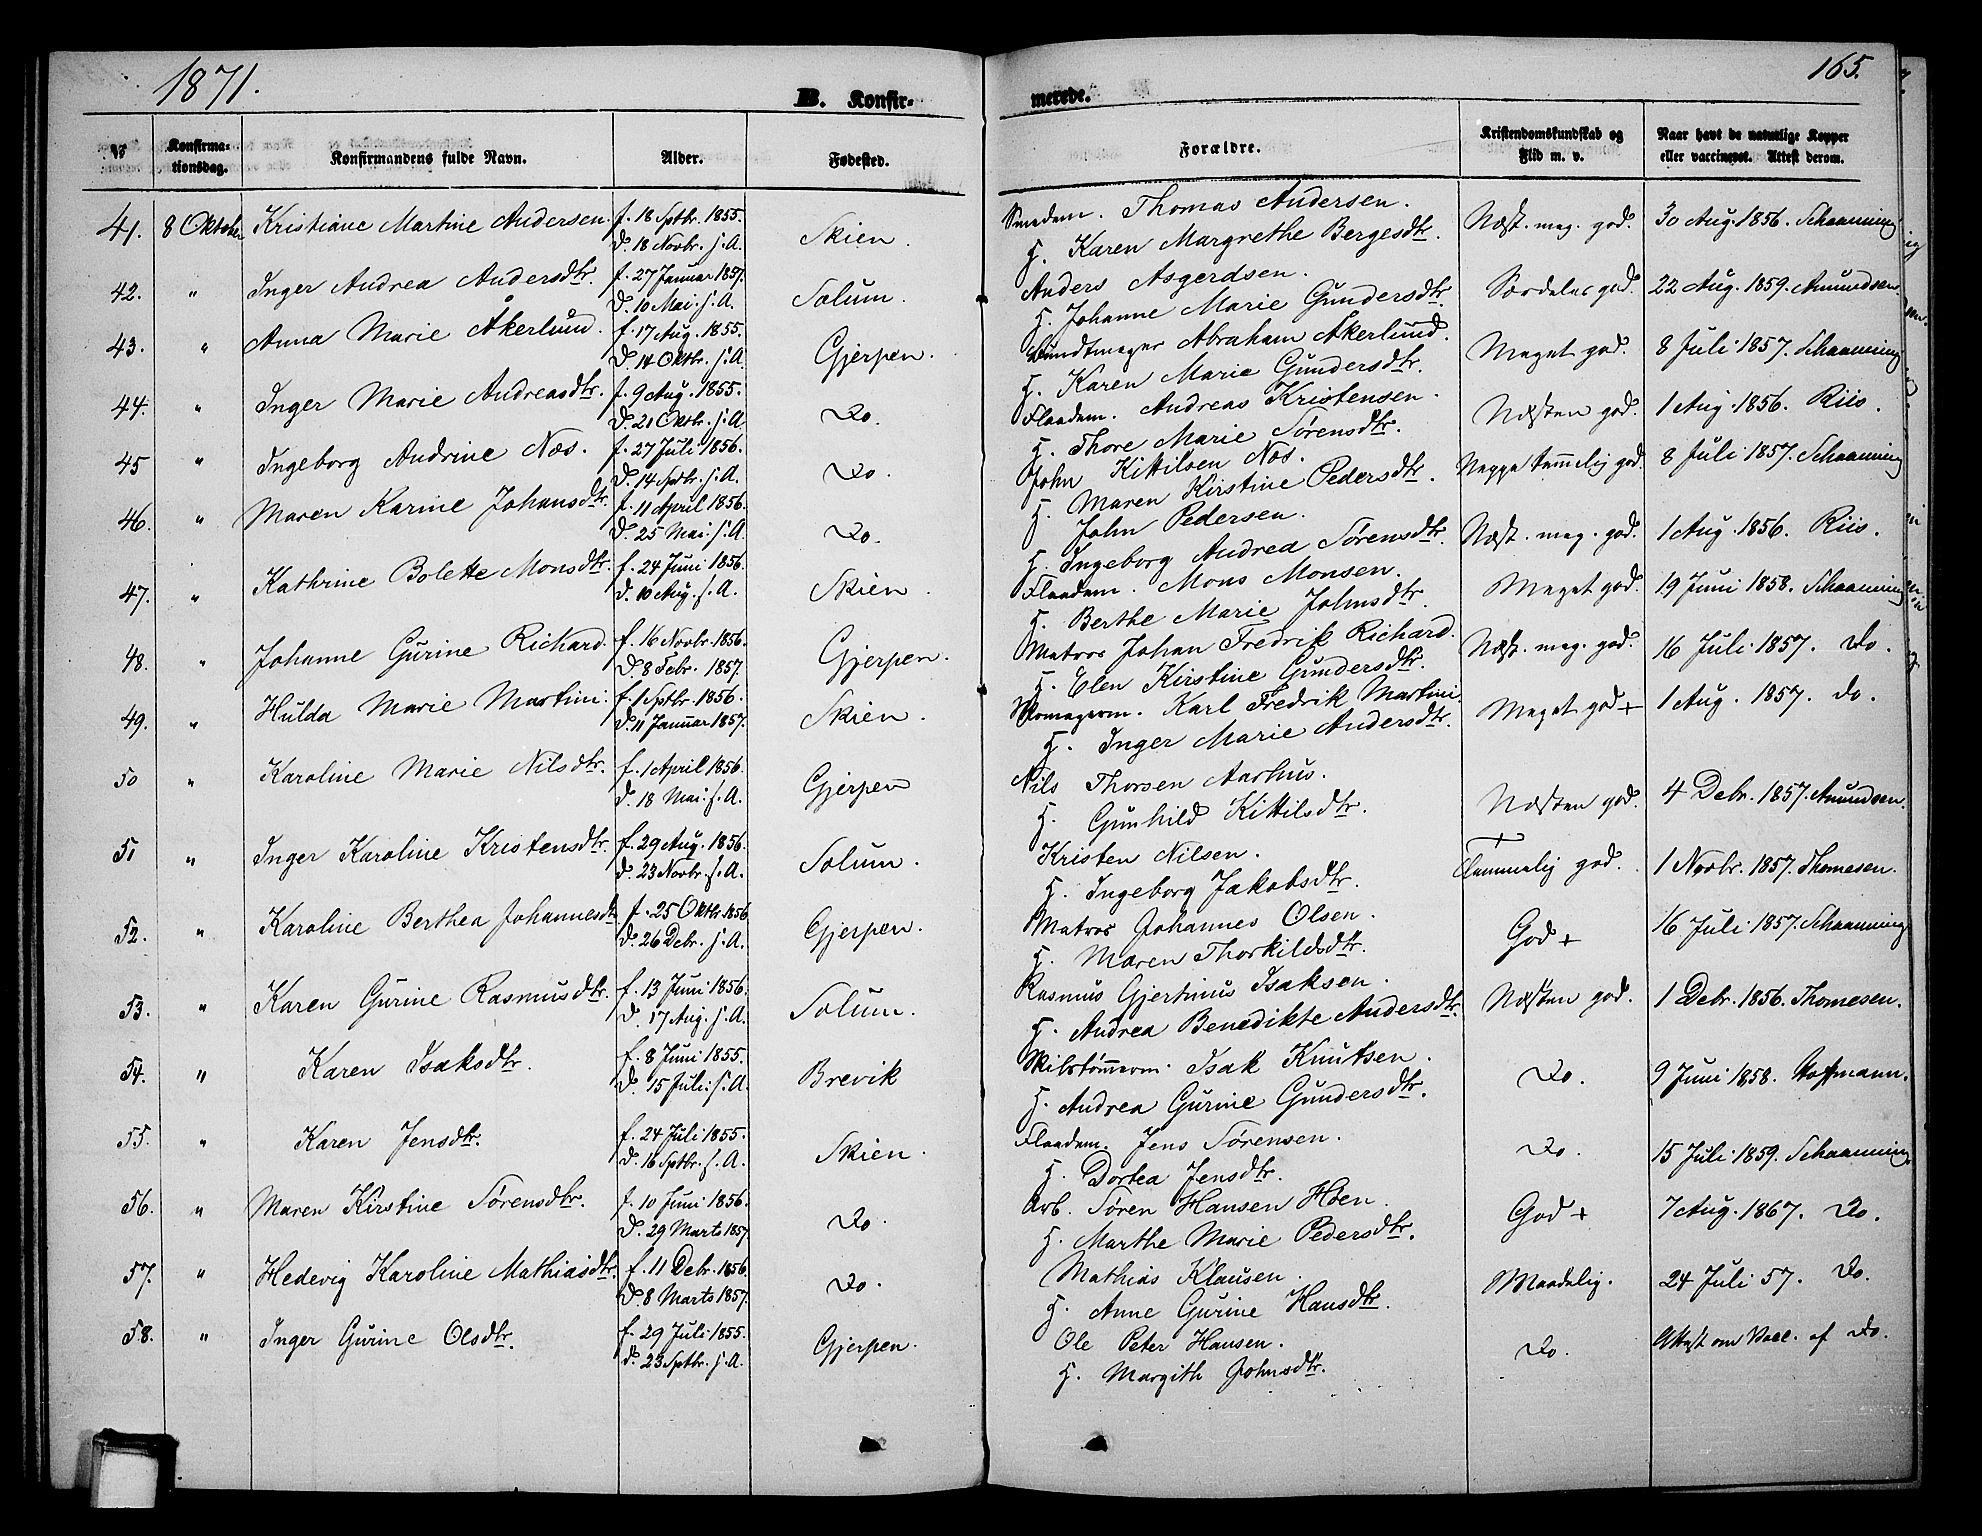 1871.
165.
B. Konfir-
merede.
№
Konfirma-
tionsdag.
Konfirmandens fulde Navn.
Alder.
Fødested.
Forældre.
Kristendomskundskab og
Flid m. v.
Naar havt de naturlige Kopper
eller vaccineret. Attest derom.
41. 8 Oktober Kristiane Martine Andersen. f. 18 Sptbr. 1855. Skien. Smedem. Thomas Andersen. Næst. meg. god. 30 Aug. 1856. Schaanning
D. 18 Novbr. s. A. H. Karen Margrethe Bergesdtr.
42. " Inger Andrea Andersdtr. f. 27 Januar 1857. Solum. Anders Asgerdsen. Særdeles god. 22 Aug. 1859. Amundsen.
D. 10 Mai. s. A. H. Johanne Marie Gundersdtr.
43. " Anna Marie Åkerlund. f. 17 Aug. 1855. Gjerpen. Bundtmager Abraham Åkerlund. Meget god. 8 Juli 1857. Schaanning
D. 14 Oktbr. s. A. H. Karen Marie Gundersdtr.
44. " Inger Marie Andreasdtr. f. 9 Aug. 1855. Do. Flaadem. Andreas Kristensen. Næsten god. 1 Aug. 1856. Riis.
D. 21 Oktbr. s. A. H. Thore Marie Sørensdtr.
45 " Ingeborg Andrine Næs. f. 27 Juli 1856. Do. John Kittilsen Næs. Neppe temmelig god. 8 Juli 1857. Schaanning
D. 14 Sptbr. s. A. H. Maren Kirstine Pedersdtr.
46. " Maren Karine Johansdtr. f. 11 April 1856. Do. John Pedersen. Næst. meg. god. 1 Aug. 1856. Riis.
D. 25 Mai. s. A. H. Ingeborg Andrea Sørensdtr.
47. " Kathrine Bolette Monsdtr. f. 24 Juni 1856. Skien. Flaadem. Mons Monsen. Meget god. 19 Juni 1858. Schaanning
D. 10 Aug. s. A. H. Berthe Marie Johnsdtr.
48. " Johanne Gurine Richard. f. 16 Novbr. 1856. Gjerpen. Matros Johan Fredrik Richard. Næst. meg. god. 16 Juli 1857. Do.
D. 8 Febr. 1857. H. Elen Kirstine Gundersdtr.
49. " Hulda Marie Martini. f. 1 Sptbr. 1856. Skien. Skomagerm. Karl Fredrik Martini. Meget god + 1 Aug. 1857. Do.
D. 11 Januar 1857. H. Inger Marie Andersdtr.
50 " Karoline Marie Nilsdtr. f. 1 April 1856. Gjerpen Nils Thorsen Aarhus. Næsten god. 4 Debr. 1857. Amundsen.
D. 18 Mai. s. A. H. Gunhild Kittilsdtr.
51 " Inger Karoline Kristensdtr. f. 29 Aug. 1856. Solum. Kristen Nilsen. Temmelig god. 1 Novbr. 1857. Thomesen.
D. 23 Novbr. s. A. H. Ingeborg Jakobsdtr.
52. " Karoline Berthea Johannesdtr. f. 25 Oktbr. 1856 Gjerpen. Matros Johannes Olsen. God + 16 Juli 1857. Schaanning
D. 26 Debr. s. A. H. Maren Thorkildsdtr.
53. " Karen Gurine Rasmusdtr. f. 13 Juni 1856. Solum. Rasmus Gjertinius Isaksen. Næsten god. 1 Debr. 1856. Thomesen.
D. 17 Aug. s. A. H. Andrea Benedikte Andersdtr.
54. " Karen Isaksdtr. f. 8 Juni 1855. Brevik Skibstømmerm. Isak Knutsen. Do. 9 Juni 1858. Hoffmann.
D. 15 Juli. s. A. H. Andrea Gurine Gundersdtr.
55. " Karen Jensdtr. f. 24 Juli 1855. Skien. Flaadem. Jens Sørensen. Do. 15 Juli 1859. Schaanning
D. 16 Sptbr. s. A. H. Dortea Jensdtr.
56. " Maren Kirstine Sørensdtr. f. 10 Juni 1856. Do. Arb. Søren Hansen Hoen. God + 7 Aug. 1867. Do.
D. 29 Marts 1857. H. Marthe Marie Pedersdtr.
57. " Hedevig Karoline Mathiasdtr. f. 11 Debr. 1856. Do. Mathias Klausen. Maadelig. 24 Juli 57. Do.
D. 8 Marts 1857. H. Anne Gurine Hansdtr.
58. " Inger Gurine Olsdtr. f. 29 Juli 1855. Gjerpen. Ole Peter Hansen. Do. Attest om Vacc. af Do.
D. 23 Sptbr. s. A. H. Margith Johnsdtr.